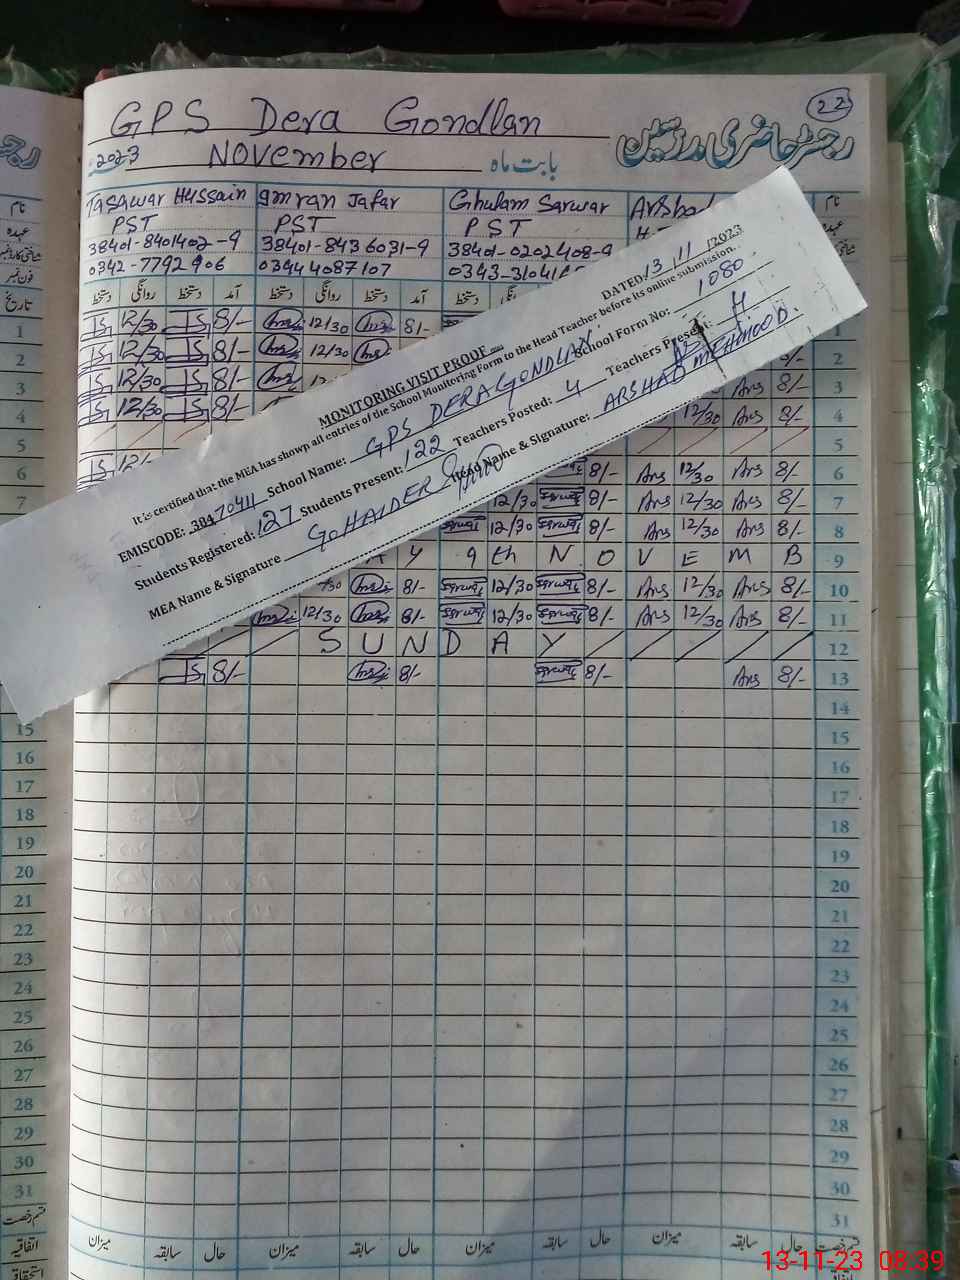 22
GPS Dera Gondlan
رجسٹر حاضری مدرسین
2023 November بابت ماہ
Tasawar Hussain Imran Jafar Ghulam Sarwar Arshad نام
PST PST PST عہدہ
38401-8401402-9 38401-8436031-9 38401-0202408-9
0342-7792906 03444087107 فون نمبر
دستخط روانگی دستخط آمد دستخط روانگی دستخط آمد دستخط تاریخ
12/30 8/- 12/30 8/- 1
12/30 8/- 12/30 2
12/30 8/- Ars 8/- 3
12/30 8/- 12/30 Ars 8/- 4
5
8/- Ars 12/30 Ars 8/- 6
12/30 8/- Ars 12/30 Ars 8/- 7
12/30 8/- Ars 12/30 Ars 8/- 8
9th NOVEMB 9
8/- 12/30 8/- Ars 12/30 Ars 8/- 10
12/30 8/- 12/30 8/- Ars 12/30 Ars 8/- 11
SUNDAY 12
8/- 8/- 8/- Ars 8/- 13
14
15
16
17
18
19
20
21
22
23
24
25
26
27
28
29
30
31
میزان سابقہ حال میزان سابقہ حال میزان سابقہ حال میزان سابقہ حال
MONITORING VISIT PROOF DATED 13/11/2023
It is certified that the MEA has shown all entries of the School Monitoring Form to the Head Teacher before its online submission.
EMISCODE: 38470411 School Name: GPS DERA GONDLAN School Form No: 1080
Students Registered: 127 Students Present: 122 Teachers Posted: 4 Teachers Present: 4
MEA Name & Signature G. HAIDER Name & Signature: ARSHAD MEHMOOD.
15
16
17
18
19
20
21
22
23
24
25
26
27
28
29
30
31
قسم رخصت
اتفاقیہ
استحقاقی
13-11-23 08:39